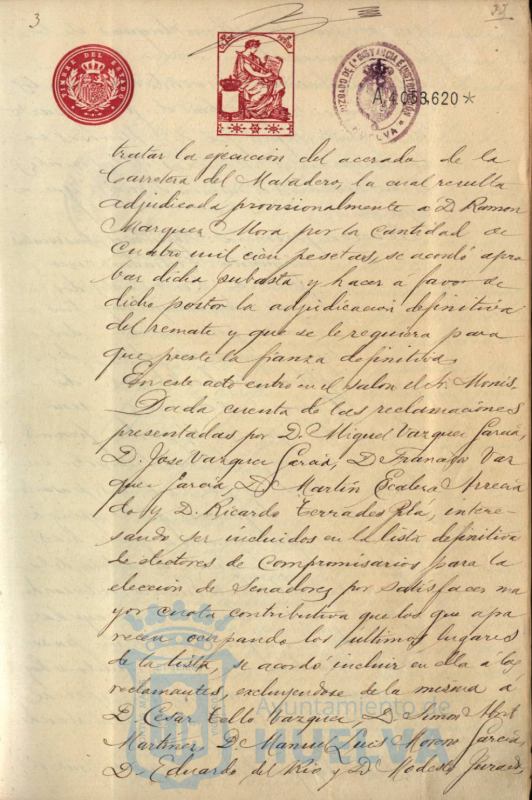 3
TIMBRE DEL ESTADO
JUZGADO DE 1ª INSTANCIA É INSTRUCCION
HUELVA
A.4.053.620*
tratar la ejecucion del acerado de la
Carretera del Matadero, la cual resulta
adjudicada provisionalmente á D. Ramon
Marquez Mora por la cantidad de
cuatro mil cien pesetas, se acordó apro
bar dicha subasta y hacer á favor de
dicho postor la adjudicacion definitiva
del remate y que se le requiera para
que preste la fianza definitiva.
En este acto entró en el salon el Sr. Monis.
Dada cuenta de las reclamaciones
presentadas por D. Miguel Vazquez Garcia,
D. José Vazquez Garcia, D. Francisco Vaz
quez Garcia, D. Martín Escalera Arrecia
do y D. Ricardo Terrades Pla, intere-
sando ser incluidos en la lista definitiva
de electores de Compromisarios para la
elección de Senadores por satisfacer ma
yor cuota contributiva que los que apa
recen ocupando los ultimos lugares
de la lista, se acordó incluir en ella á los
reclamantes, excluyendose de la misma a
D. Cesar Tello Vazquez, D. Simon
Martinez, D. Manuel Luis Moreno Garcia,
D. Eduardo del Rio y D. Modesto
Ayuntamiento de
HUELVA